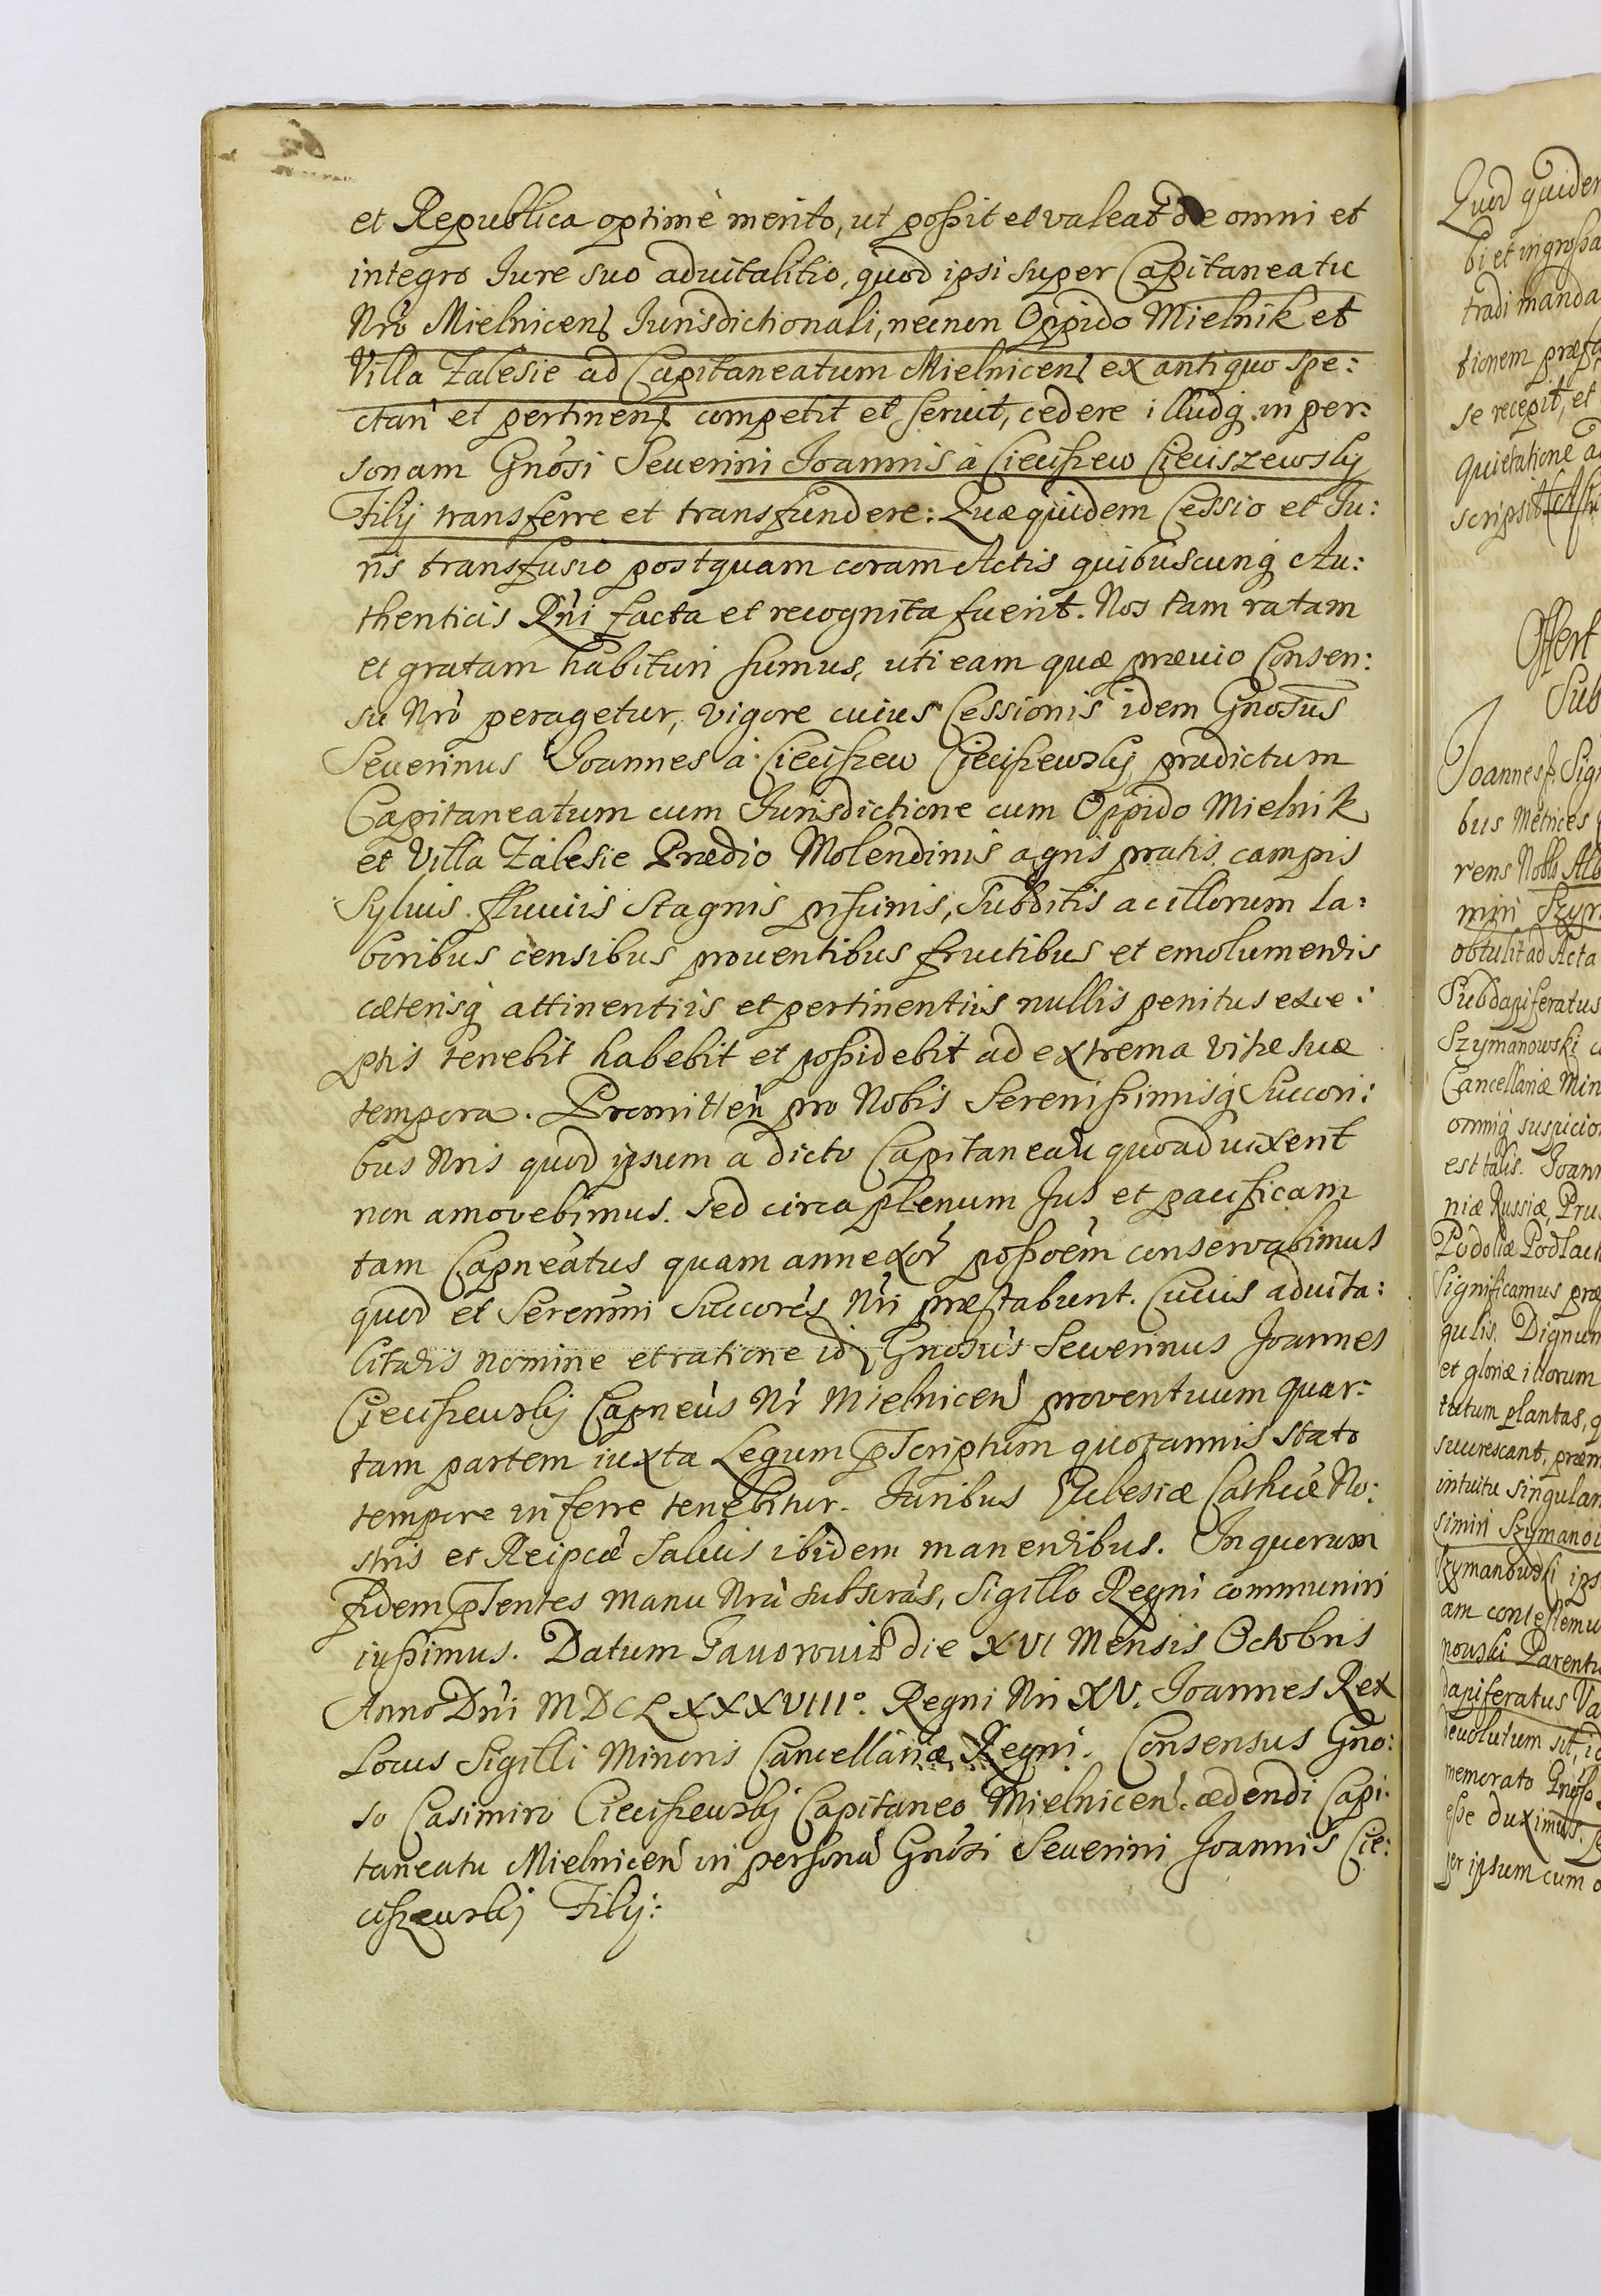 et Republica optimè merito, ut poßit et valeat de omni et
integro Iure suo aduitalitio, quod ipsi super Capitaneatu
Nrô Mielnicen Iurisdictionali, necnon Oppido Mielnik et
Villa Zalesie ad Capitaneatum Mielnicen ex antiquo spe:
ctan et pertinen competit et seruit, cedere illudq in per:
sonam Gnosi Seuerini Joannis à Ciecißew Cieciszewsky
Filij transferre et transfundere: Quæ quidem Cessio et Iu:
ris transfusio postquam coram Actis quibuscunq Au:
thenticis Rni facta et recognita fuerit. Nos tam ratam
et gratam habituri sumus, uti eam quæ præuio Consen:
su Nrô peragetur, vigore cuius Cessionis idem Gnosus
Seuerinus Joannes à Ciecißew Ciecißewskij prædictum
Capitaneatum cum Iurisdictione cum Oppido Mielnik
et Villa Zalesie Prædio Molendinis agris pratis campis
Syluis fluuiis Stagnis piscinis, Subditis ac illorum la:
boribus censibus prouentibus fructibus et emolumentis
cæterisq attinentiis et pertinentiis nullis penitus exce:
ptis tenebit habebit et poßidebit ad extrema vitæ suæ
tempora. Promitten pro Nobis Serenißimisq Succori:
bus Nris quod ipsum a dicto Capitaneatu quoad uixerit
non amovebimus. Sed circa plenum Jus et pacificam
tam Capneatus quam annexor poßoem conservabimus
quod et Serenmi Succores Nri præstabunt. Cuius aduita:
litatis nomine et ratione id Gnosus Seuerinus Joannes
Ciecißewskij Capneus Nr Mielnicen proventuum quar:
tam partem iuxta Legum pscriptum quotannis stato
tempore inferre tenebitur. Iuribus Ecclesiæ Cathcæ No:
stris et Reipcæ Saluis ibidem manentibus. In quorum
fidem psentes manu Nra subscras, Sigillo Regni communiri
iußimus. Datum Javoroviæ die XVI Mensis Octobris
Anno Dni MDCLXXXVIII°. Regni Nri XV. Joannes Rex
Locus Sigilli Minoris Cancellariæ Regni. Consensus Gno:
so Casimiro Ciecißewskij Capitaneo Mielnicen. cedendi Capi:
taneatu Mielnicen in persona Gnosi Seuerini Joannis Cie:
cißzewskij Filij:
Quod quidem
bi et ingroßa
tradi manda
tionem præs
se recepit, et
quietatione
scripsit
Offert
Sub
Joannes Sig
bus Metrices
rens Nobb Alb
miri Szym
obtulit ad Acta
Subdapiferatus
Szymanowski
Cancellariæ Min
omniq suspicio
est talis. Joann
niæ Russiæ, Pru
Podoliæ Podlach
Significamus præ
gulis. Dignum
et gloriæ illorum
tutum plantas, q
succrescant, præm
intuitu singular
simiri Szymano
Szymanowski ips
am contestemu
nowski Parentu
dapiferatus Va
deuolutum sit, id
memorato Gnoso
eße duximus.
per ipsum cum